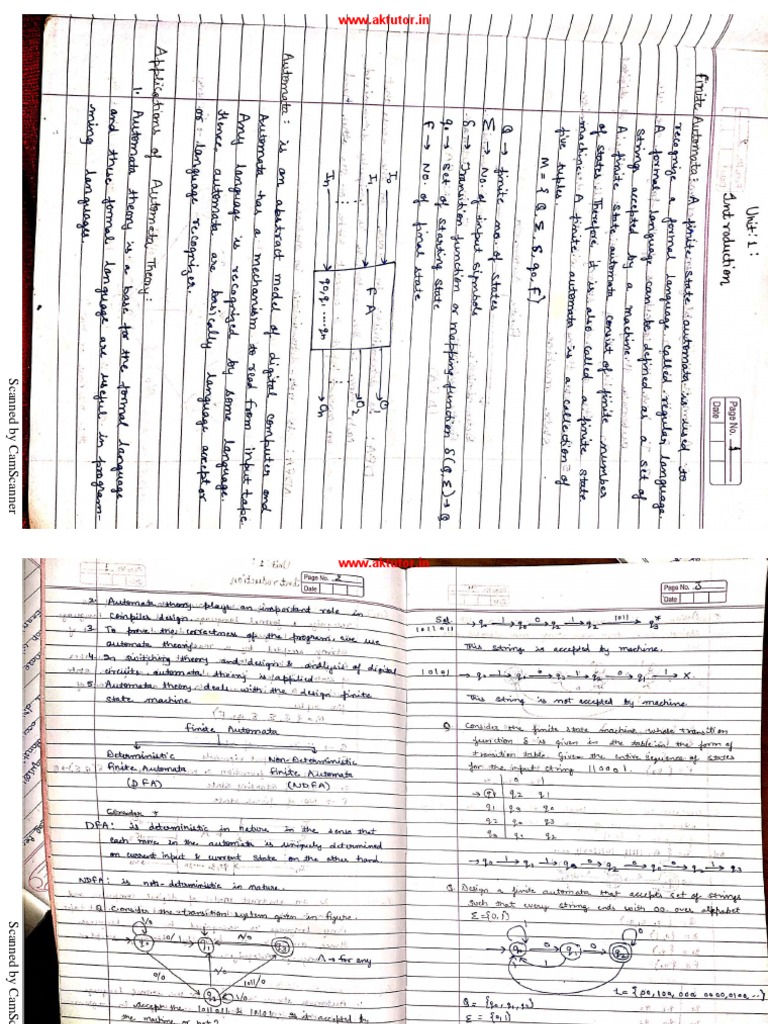 www.aktutor.in
Page No. 1
Date
Unit: 1:
Introduction
Finite Automata: A finite state automata is used to
recognize a formal language called regular language.
A formal language can be defined as a set of
strings accepted by a machine.
A finite state automata consist of finite number
of states. Therefore it is also called a finite state
machine. A finite automata is a collection of
five tuples.
M = { Q, Σ, δ, q0, F}
Q → finite no. of states
Σ → No. of input symbols
δ → Transition function or mapping function δ(Q, Σ) → Q
q0 → set of starting state
F → No. of final state
I0
I1
In
FA
q0, q1 ....qn
O1
O2
On
Automata: is an abstract model of digital computer and
Automata has a mechanism to read from input tape.
Any language is recognized by some language.
Hence, automata are basically language acceptor
or language recognizer.
Applications of Automata Theory:
1. Automata theory is a base for the formal language
and these formal language are useful in program-
ming languages.
Scanned by CamScanner
www.aktutor.in
Page No. 2
Date
2. Automata theory plays an important role in
compiler design.
3. To prove the correctness of the program, we use
automata theory.
4. In switching theory and design & analysis of digital
circuits automata theory is applied.
5. Automata theory deals with the design finite
state machine.
Finite Automata
Deterministic
Finite Automata
(DFA)
Non-Deterministic
Finite Automata
(NDFA)
DFA: is deterministic in nature in the sense that
each move in the automata is uniquely determined
on current input & current state on the other hand.
NDFA: is non-deterministic in nature.
Q Consider the transition system given in figure.
Λ → for any
accept the 1011011 & 10101 is it accepted by
the machine or not?
Page No. 3
Date
Sol
1011011
This string is accepted by machine.
10101
This string is not accepted by machine
Q Consider the finite state machine whose transition
function δ is given in the table in the form of
transition table. Given the entire sequence of states
for the input string 110001.
0 1
→q0 q2 q1
q1 q3 q0
q2 q0 q3
q3 q1 q2
Q. Design a finite automata that accepts set of strings
such that every string ends with 00 over alphabet
Σ={0,1}
q0 0 q1 0 q2
L = {00, 100, 000, 0000, 0100, ...}
Q = {q0, q1, q2}
Σ = {0,1}
Scanned by CamSc